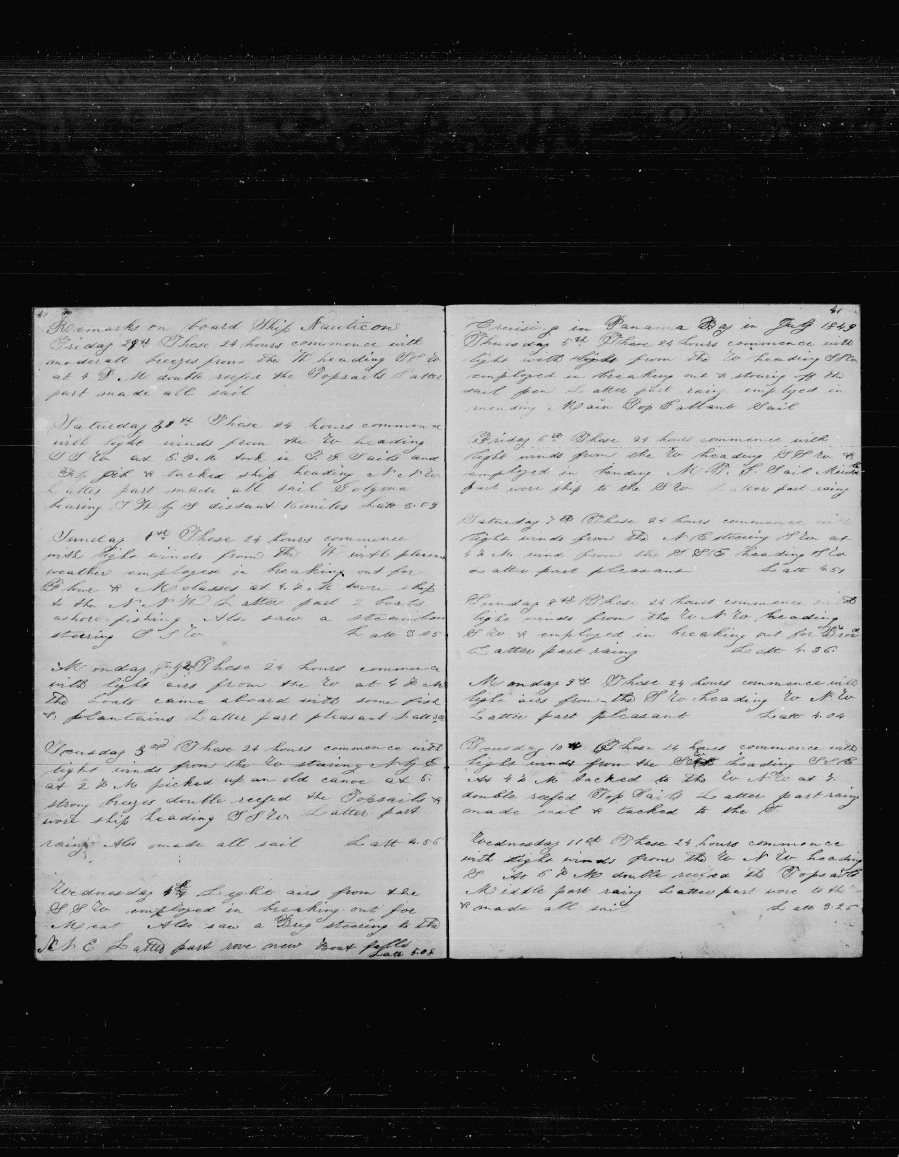 Remarks on board Ship Nauticon
Friday 29th These 24 hours commence with
moderate breezes from the W heading SSW
at 4 P M double reefed the Topsails Latter
part made all sail
Saturday 30th These 24 hours commence
with light winds from the W heading
SSW at 5 P.M took in T. G Sails and
Jib & tacked ship heading N W
Latter part made all sail
bearing S W by S distant 15 miles Latt 3.09
Sunday 1st These 24 hours commence
with light winds from the W with pleasant
weather employed in breaking out for
Flour & Molasses at 4 P. M wore ship
to the N N W Latter part 2 boats
ashore fishing Also saw a steamboat
steering S S W Latt 3.05
Monday July 2 These 24 hours commence
with light airs from the W at 4 P M
the boats came aboard with some fish
& plantains Latter part pleasant Latt
Tuesday 3rd These 24 hours commence with
light winds from the W steering N by E
at 2 P M picked up an old canoe at 5
strong breezes double reefed the Topsails &
wore ship heading S S W Latter part
rainy Also made all sail Latt 4.56
Wednesday 4th Light airs from the
S S W employed in breaking out for
Meat Also saw a Brig steering to the
N. E Latter part rove new Boat falls
Latt 5.05
41
Cruising in Panama Bay in July 1849
Thursday 5th These 24 hours commence with
light winds from the W heading SSW
employed in breaking out & stowing off the
sail pen Latter part rainy employed in
mending Main Top Gallant Sail
Friday 6th These 24 hours commence with
light winds from the W heading S S W &
employed in bending M T. G Sail Middle
part wore ship to the S W Latter part rainy
Saturday 7th These 24 hours commence with
light winds from the N E steering S W at
4 P M wind from the S S E heading S W
Latter part pleasant Latt 4.51
Sunday 8th These 24 hours commence with
light winds from the W N W heading
S W & employed in breaking out for Bread
Latter part rainy Latt 4.25
Monday 9th These 24 hours commence with
light airs from the S W heading W N W
Latter part pleasant Latt 4.04
Tuesday 10th These 24 hours commence with
light winds from the heading S S E
At 4 P M tacked to the W N W at 7
double reefed Top Sails Latter part rainy
made sail & tacked to the S.
Wednesday 11th These 24 hours commence
with light winds from the W N W heading
S At 6 P M double reefed the Topsails
Middle part rainy Latter part wore to the
& made all sail Latt 3.25